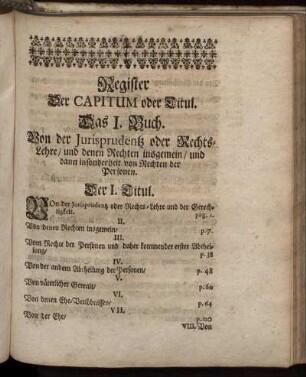 Register
Der CAPITUM oder Titul.
Das I. Buch.
Von der Jurisprudentz oder Rechts-
Lehre/ und denen Rechten insgemein/ und
dann insonderheit von Rechten der
Personen.
Der I. Titul.
VOn der Jurisprudentz oder Rechts-Lehre und der Gerech-
tigkeit. pag. 1.
II.
Von denen Rechten insgemein/ p. 7.
III.
Vom Rechte der Personen und daher kommender erster Abthei-
lung/ p. 38
IV.
Von der andern Abtheilung der Personen/ p. 48
V.
Von väterlicher Gewalt/ p. 60
VI.
Von denen Ehe/Verlöbnissen/ p. 64
VII.
Von der Ehe/ p. 110
VIII. Von